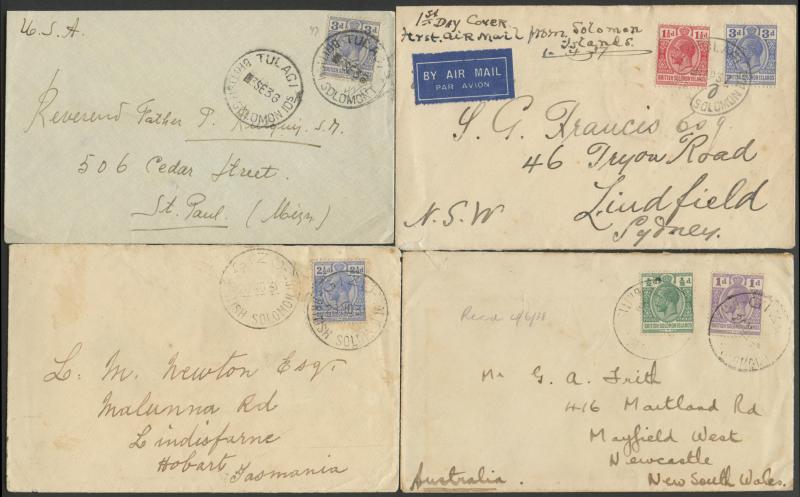 U.S.A.
3d 3d
TULAGI
SE 36
SOLOMON IDS
TULAGI
SOLOMON I
Reverend Father P.
506 Cedar Street.
St. Paul (Minn)
1st Day Cover
First Air Mail from Solomon
Islands.
BY AIR MAIL
PAR AVION
1½d 1½d
BRITISH SOLOMON ISLANDS
3d 3d
SOLOMON IDS
S. G. Francis Esq
46 Tryon Road
Lindfield
N.S.W
Sydney.
GIZO
SOLOMON
2½d 2½d
L. M. Newton Esq.
Malunna Rd
Lindisfarne
Hobart
Tasmania
½d ½d
BRITISH SOLOMON ISLANDS
1d 1d
BRITISH SOLOMON ISLANDS
Mr G. A. Frith
416 Maitland Rd
Mayfield West
Newcastle
Australia. New South Wales.